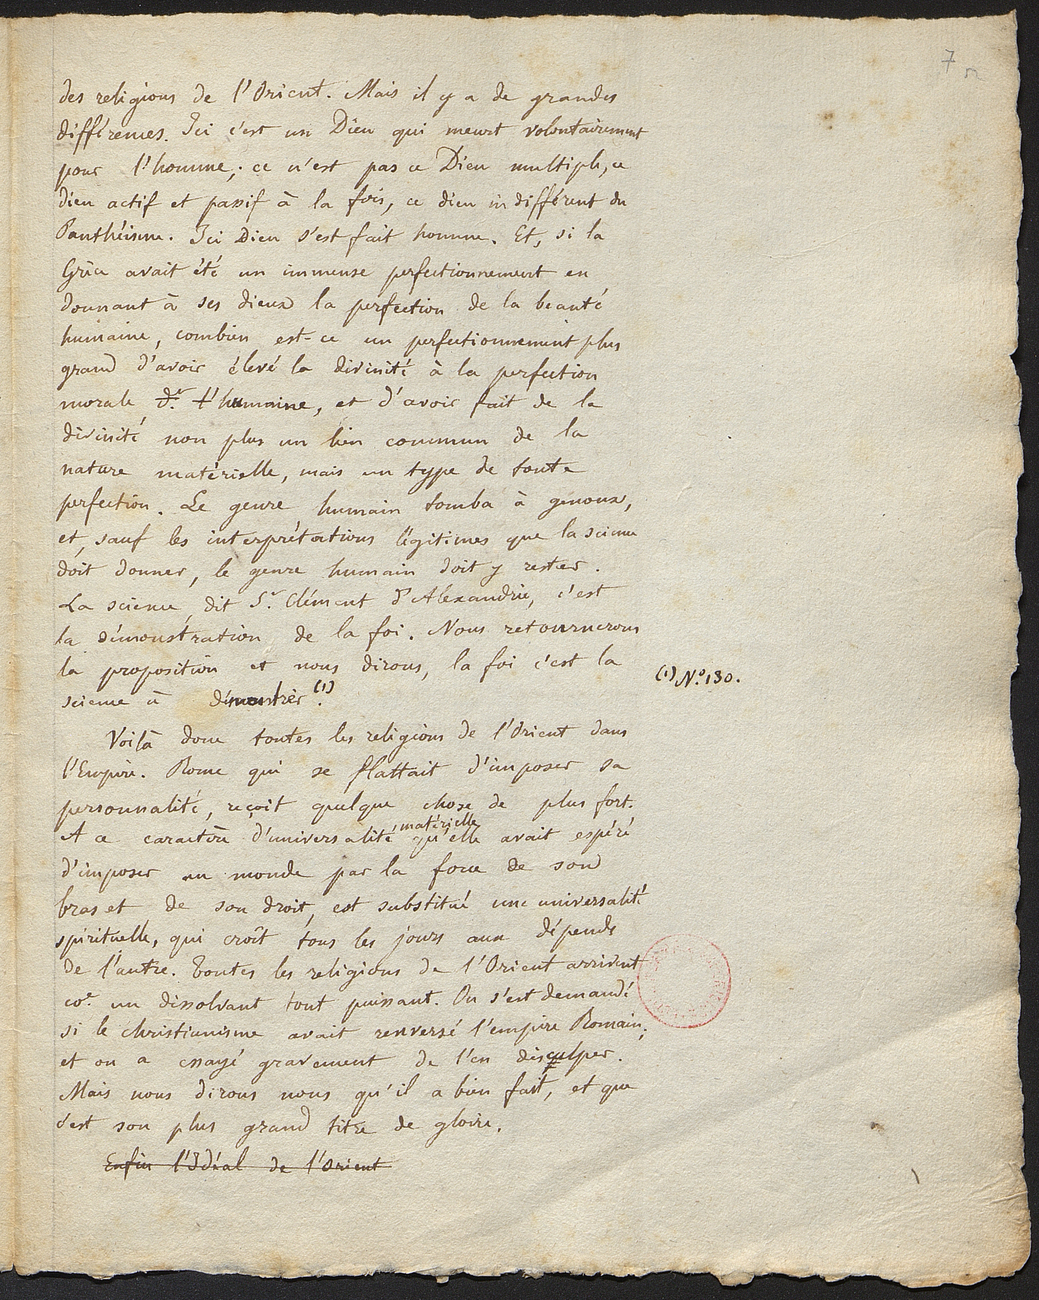 7
des religions de l'Orient. Mais il y a de grandes
différences. Ici c'est un Dieu qui meurt volontairement
pour l'homme; ce n'est pas ce Dieu multiple, ce
dieu actif et passif à la fois, ce dieu indifférent du
Panthéisme. Ici Dieu s'est fait homme. Et, si la
Grèce avait été un immense perfectionnement en
donnant à ses dieux la perfection de la beauté
humaine, combien est-ce un perfectionnement plus
grand d'avoir élevé la divinité à la perfection
morale humaine, et d'avoir fait de la
divinité non plus un lien commun de la
nature matérielle, mais un type de toute
perfection. Le genre humain tomba à genoux,
et, sauf les interprétations légitimes que la science
doit donner, le genre humain doit y rester.
La science, dit St. Clément d'Alexandrie, c'est
la démonstration de la foi. Nous retournerons
la proposition et nous dirons, la foi c'est la
science à démontrer (1).
(1) No. 130.
Voilà donc toutes les religions de l'Orient dans
l'Empire. Rome qui se flattait d'imposer sa
personnalité, reçoit quelque chose de plus fort.
A ce caractère d'universalité matérielle qu'elle avait espéré
d'imposer au monde par la force de son
bras et de son droit, est substitué une universalité
spirituelle, qui croît tous les jours aux dépends
de l'autre. Toutes les religions de l'Orient arrivent
coe. un dissolvant tout puissant. On s'est demandé
si le christianisme avait renversé l'empire Romain,
et on a essayé gravement de l'en disculper.
Mais nous dirons nous qu'il a bien fait, et que
c'est son plus grand titre de gloire.
Enfin l'Idéal de l'Orient